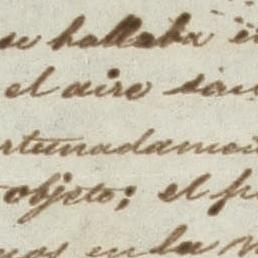 se hallaba e
el aire sa
rtunadamen
objeto; el p
en la